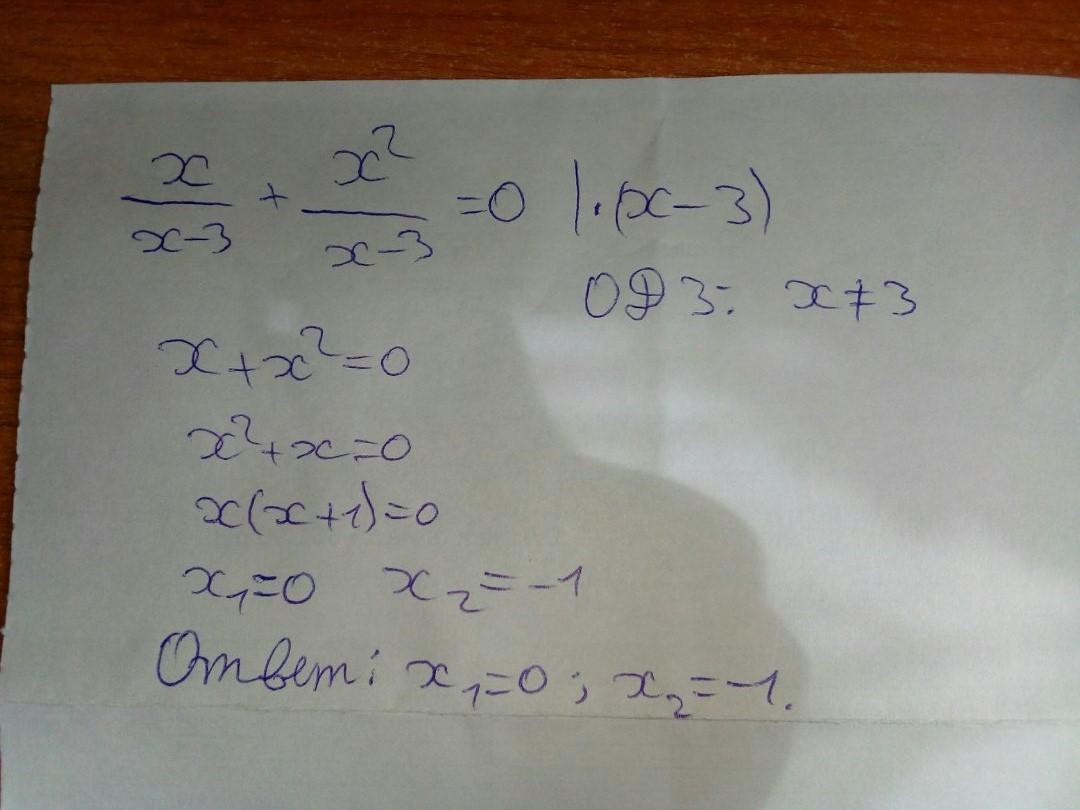 x/(x-3) + x²/(x-3) =0 |·(x-3)
ОДЗ: x≠3
x+x²=0
x²+x=0
x(x+1)=0
x₁=0 x₂=-1
Ответ: x₁=0; x₂=-1.